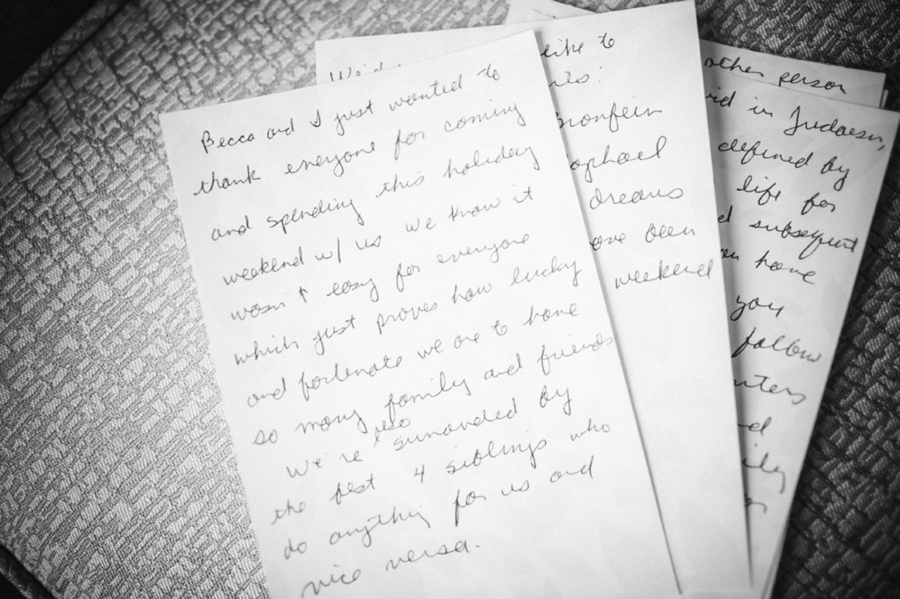 Becca and I just wanted to
thank everyone for coming
and spending this holiday
weekend w/ us. We know it
wasn't easy for everyone
which just proves how lucky
and fortunate we are to have
so many family and friends
We're also surrounded by
the best 4 siblings who
do anything for us and
vice versa.
We'd like to
Bronfein
Raphael
dreams
have been
weekend
other person
in Judaism,
defined by
life for
subsequent
have
you
follow